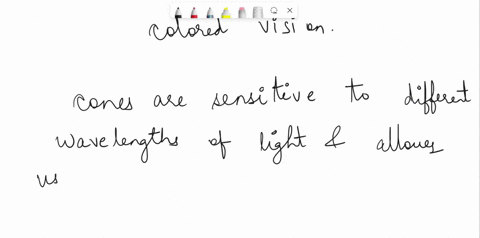 colored vision.
cones are sensitive to different
wavelengths of light & allows
us